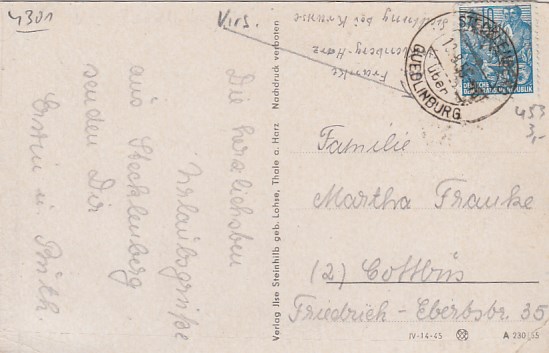 4301
Vurs.
Franke
Stecklenberg-Harz
Siedlung bei Krause
Die herzlichsten
Urlaubsgrüße
aus Stecklenberg
senden Dir
Erwin u. Ruth
Verlag Ilse Steinhilb geb. Lohse, Thale a. Harz Nachdruck verboten
STECKLENBERG
über
QUEDLINBURG
DEUTSCHE
DEMOKRATISCHE REPUBLIK
453
3,-
Familie
Martha Franke
(2) Cottbus
Friedrich-Ebertstr. 35
IV-14-45
A 230/55